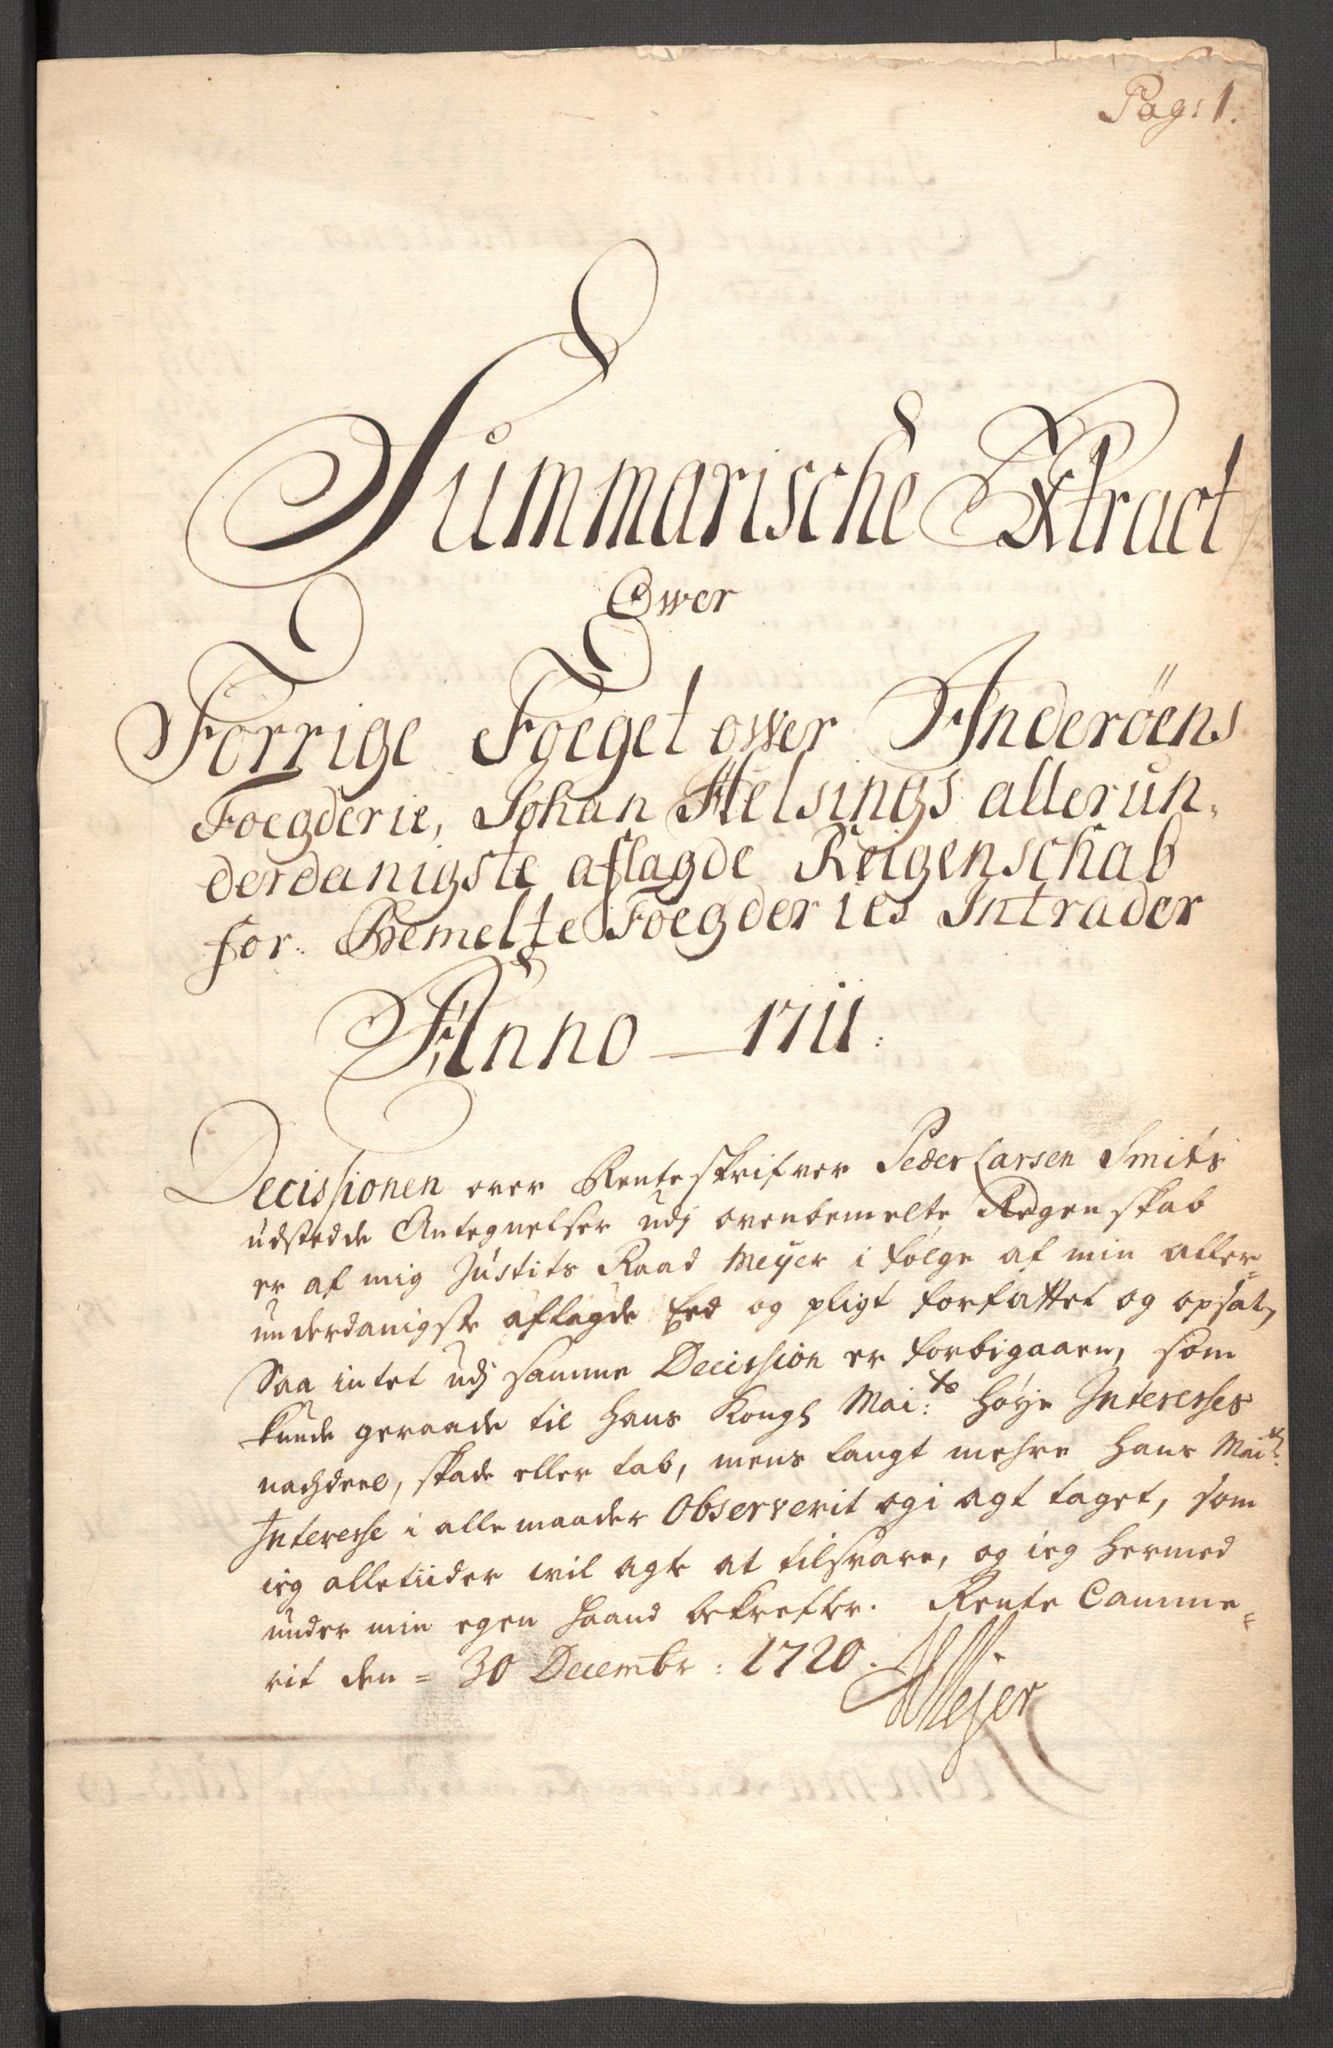 Pag: 1.
Summarische Extract
Ower
Forrige Foeget ower Inderöens
Foegderie, Johan Helsings allerun,
derdanigste aflagde Reigenschab
for. Bemelte Foegderies Intrader
Anno — 1711.
Decissionen over Renteskrifver Peder Larsen Smits
udstedde Antegnelser udj ovenbemelte Regenskab
er af mig Justits Raad Meyer i følge af min aller-
underdanigste aflagde Eed og pligt forfattet og opsat,
Saa intet udj samme Decission er forbigaaen, som
kunde geraade til Hans Kongl Mai:ts høye Interesses
nachdeel, skade eller tab, mens langt mehre Hans Mai:ts
Interesse i alle maader Observerit og i agt taget, som
ieg alletiider wil agte at tilsvare, og ieg hermed
under min egen Haand bekrefter. Rente Camme-
rit den = 30 Decembr: 1720.
Meyer